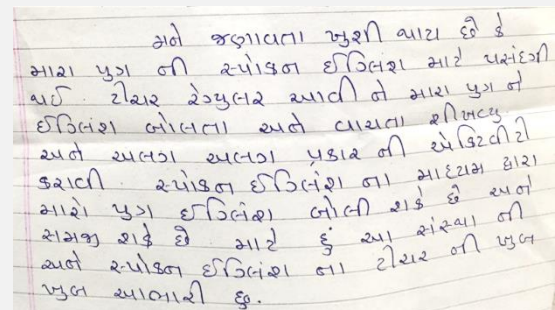 મને જણાવતા ખુશી થાય છે કે
મારા પુત્ર ની સ્પોકન ઈંગ્લિશ માટે પસંદગી
થઈ. ટીચર રેગ્યુલર આવી ને મારા પુત્ર ને
ઈંગ્લિશ બોલતા અને વાચતા શીખવ્યુ
અને અલગ અલગ પ્રકાર ની એક્ટિવીટી
કરાવી. સ્પોકન ઈંગ્લિશ ના માધ્યમ દ્વારા
મારો પુત્ર ઈંગ્લિશ બોલી શકે છે અને
સમજી શકે છે. માટે હું આ સંસ્થા ની
અને સ્પોકન ઈંગ્લિશ ના ટીચર ની ખુબ
ખુબ આભારી છુ.